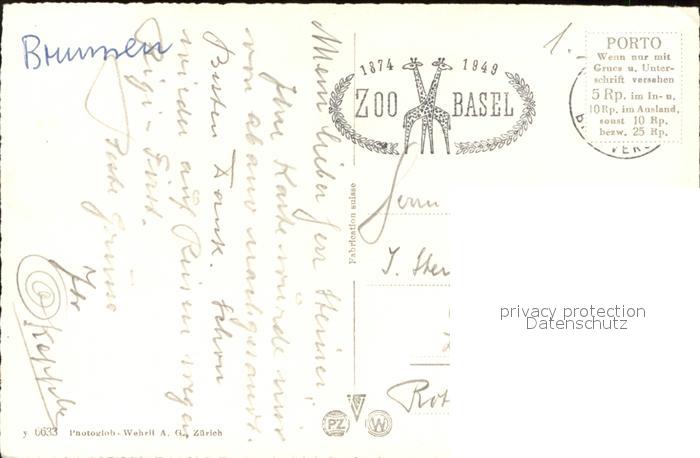 Brunnen
Mein lieber Herr Steiner!
Ihre Karte wurde mir
von abano nachgesandt.
Besten Dank. Schon
wieder auf Reisen wegen
Rigi-First.
Beste Grüsse
Ihr
Keppler
1874 1949
ZOO BASEL
1.-
PORTO
Wenn nur mit
Gruss u. Unter-
schrift versehen
5 Rp. im In- u.
10 Rp. im Ausland,
sonst 10 Rp.
bezw. 25 Rp.
Fabrication suisse
Herrn
J. Stei
Rot
privacy protection
Datenschutz
PZ W
y 6633 Photoglob-Wehrli A. G., Zürich